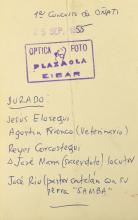 1er Concurso de OÑATI
25 SEP. 1955
OPTICA FOTO
PLAZAOLA
EIBAR
JURADO:
Jesus Elosegui
Agustin Franco (Veterinario)
Reyes Corcostegui
D. José Mom (sacerdote) locutor
José Riu (pastor catalán con su
perra "SAMBA"